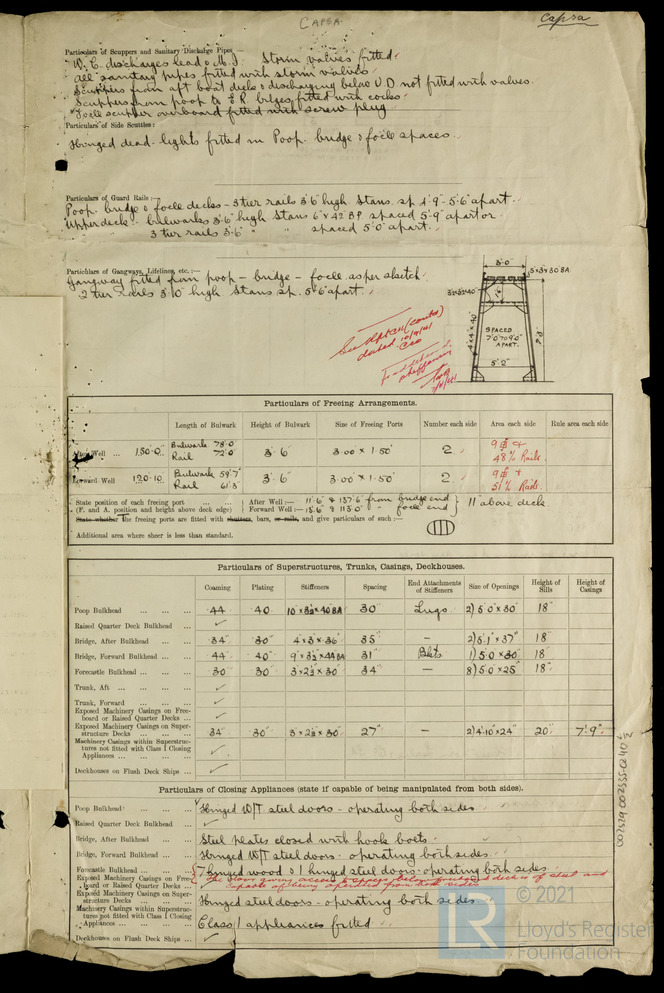 CAPSA.
Capsa
Particulars of Scuppers and Sanitary Discharge Pipes :—
W.C. discharges lead & M.I. Storm valves fitted.
All sanitary pipes fitted with storm valves.
Scuppers from aft boat decks & discharging below U.D. not fitted with valves.
Scuppers from poop to E.R. bilges fitted with cocks.
Focle scupper overboard fitted with screw plug.
Particulars of Side Scuttles :
Hinged dead-lights fitted in Poop, bridge & focle spaces.
Particulars of Guard Rails :—
Poop, bridge & focle decks - 3 tier rails 3'6" high. Stans. sp. 4'9"-5'6" apart.
Upper deck - bulwarks 3'6" high Stans 6" x 42 B.P. spaced 5'9" apart or
3 tier rails 3'6" " spaced 5'0" apart.
Particulars of Gangways, Lifelines, etc. :—
Gangway fitted from poop - bridge - focle as per sketch.
2 tier rails 3'10" high Stans sp. 5'6" apart.
3'.0"
5x3x30 BA
SPACED
7'0" TO 9'0"
APART.
5'.2"
Particulars of Freeing Arrangements.
Length of Bulwark Height of Bulwark Size of Freeing Ports Number each side Area each side Rule area each side
After Well ... 150.0 Bulwark 78.0 Rail 72.0 3'.6" 3.00 x 1.50 2 9 + 48% Rails.
Forward Well 120.10 Bulwark 59.7 Rail 61.3 3'.6" 3.00 x 1.50 2 9 + 51% Rails.
State position of each freeing port ... ... After Well :— 11'.6" & 137.6 from bridge end
(F. and A. position and height above deck edge) Forward Well :— 15'.6" & 113'.0" " focle end 11" above deck
State whether The freeing ports are fitted with shutters, bars, or rails, and give particulars of such :—
Additional area where sheer is less than standard.
Particulars of Superstructures, Trunks, Casings, Deckhouses.
Coaming Plating Stiffeners Spacing End Attachments of Stiffeners Size of Openings Height of Sills Height of Casings
Poop Bulkhead ... ... ... 44 40 10 x 3½ x 40 BA 30" Lugs 2) 5.0 x 30" 18"
Raised Quarter Deck Bulkhead ✓
Bridge, After Bulkhead ... ... 34" 30" 4 x 3 x 36" 35" — 2) 5.1" x 37" 18
Bridge, Forward Bulkhead ... ... 44" 40" 9" x 3½ x 44 BA 31" Bkts 1) 5.0 x 30" 18"
Forecastle Bulkhead ... ... 30" 30" 3 x 2½ x 30 34" — 8) 5.0 x 25" 18"
Trunk, Aft ... ... ... ✓
Trunk, Forward ... ... ... ✓
Exposed Machinery Casings on Freeboard or Raised Quarter Decks ... ✓
Exposed Machinery Casings on Superstructure Decks ... ... 34" 30" 3 x 2½ x 30" 27" — 2) 4'.10" x 24" 20" 7'.9"
Machinery Casings within Superstructures not fitted with Class I Closing Appliances ... ... ✓
Deckhouses on Flush Deck Ships ... ✓
Particulars of Closing Appliances (state if capable of being manipulated from both sides).
Poop Bulkhead ... ... ... Hinged W/T steel doors - operating both sides.
Raised Quarter Deck Bulkhead ✓
Bridge, After Bulkhead ... ... Steel plates closed with hook bolts.
Bridge, Forward Bulkhead ... ... Hinged W/T steel doors - operating both sides.
Forecastle Bulkhead ... ... 7 hinged wood & 1 hinged steel doors - operating both sides.
The doors giving access to spaces below freeboard deck is of steel and
capable of being operated from both sides
Exposed Machinery Casings on Freeboard or Raised Quarter Decks ... ✓
Exposed Machinery Casings on Superstructure Decks ... ... Hinged steel doors - operating both sides
Machinery Casings within Superstructures not fitted with Class I Closing Appliances ... ... Class 1 appliances fitted
Deckhouses on Flush Deck Ships ... ✓
002529-002535-0240 ½
© 2021
LR
Lloyd's Register
Foundation